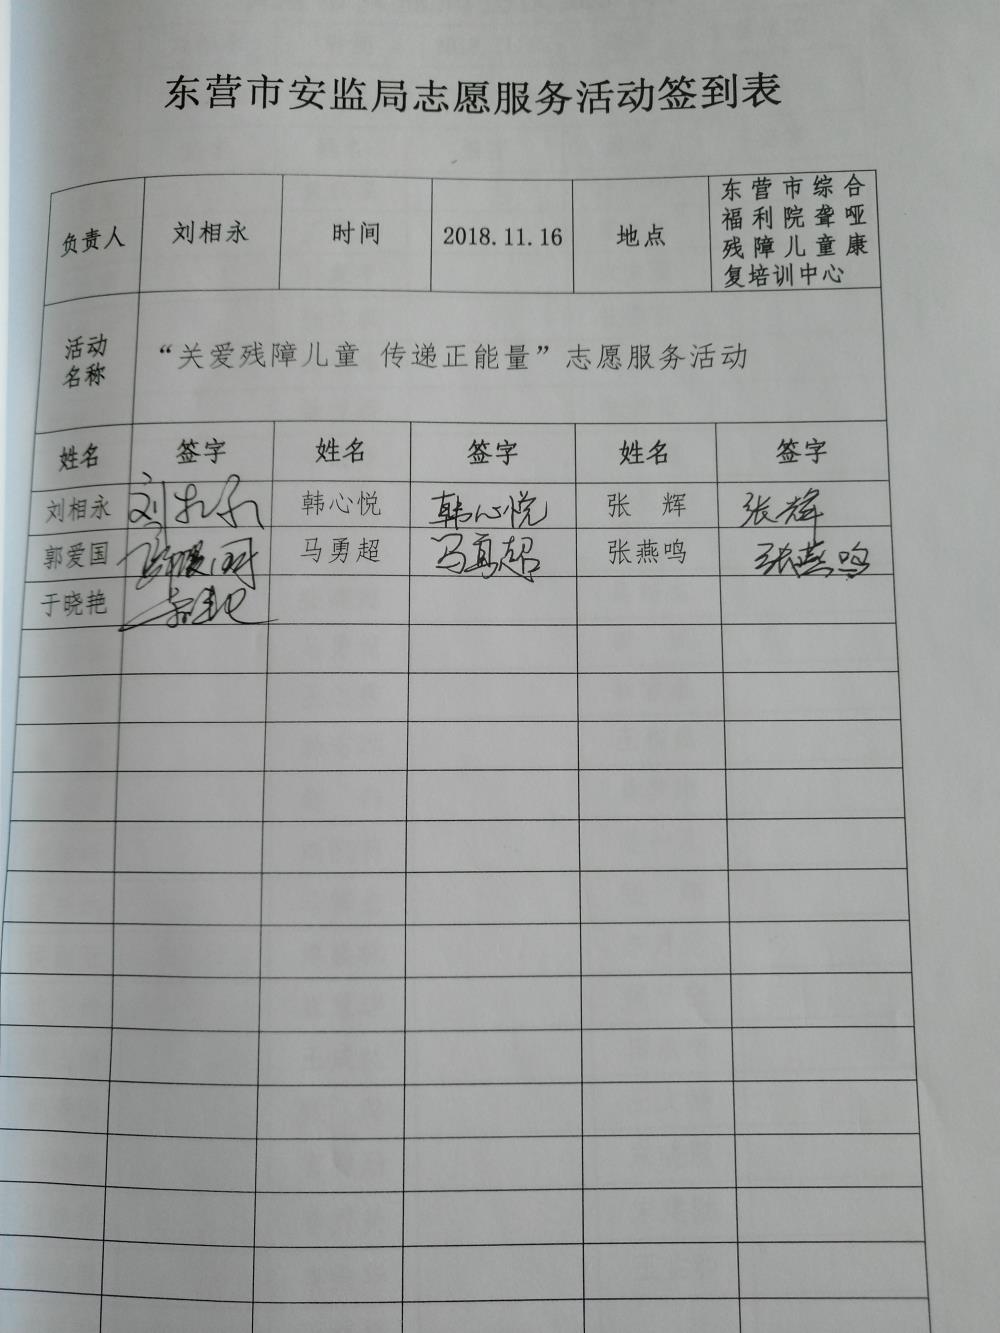 东营市安监局志愿服务活动签到表
负责人 刘相永 时间 2018.11.16 地点 东营市综合
福利院聋哑
残障儿童康
复培训中心
活动
名称
“关爱残障儿童 传递正能量”志愿服务活动
姓名 签字 姓名 签字 姓名 签字
刘相永 刘相永 韩心悦 韩心悦 张 辉 张辉
郭爱国 郭爱国 马勇超 马勇超 张燕鸣 张燕鸣
于晓艳